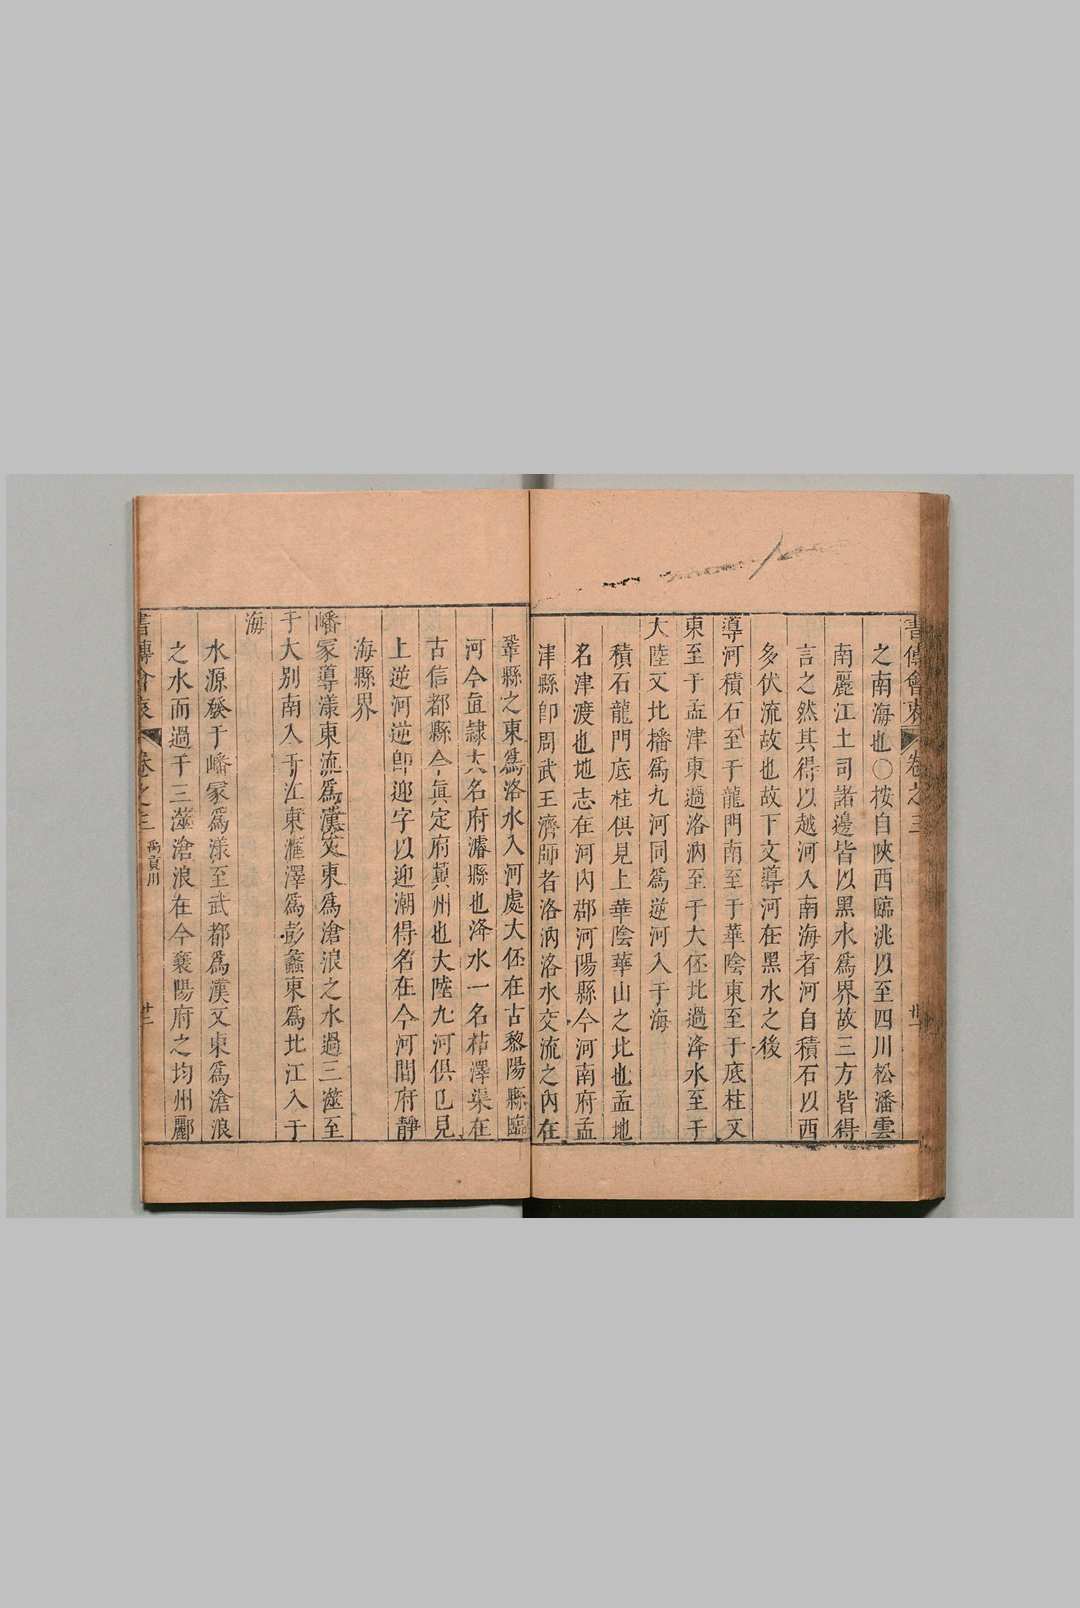 書傳會衷 卷之三
之南海也○按自陝西臨洮以至四川松潘雲
南麗江土司諸邊皆以黑水爲界故三方皆得
言之然其得以越河入南海者河自積石以西
多伏流故也故下文導河在黑水之後
導河積石至于龍門南至于華陰東至于底柱又
東至于孟津東過洛汭至于大伾北過洚水至于
大陸又北播爲九河同爲逆河入于海
積石龍門底柱俱見上華陰華山之北也孟地
名津渡也地志在河內郡河陽縣今河南府孟
津縣卽周武王濟師者洛汭洛水交流之內在
鞏縣之東爲洛水入河處大伾在古黎陽縣臨
河今直隸大名府濬縣也洚水一名枯澤渠在
古信都縣今眞定府冀州也大陸九河俱已見
上逆河逆卽迎字以迎潮得名在今河間府靜
海縣界
嶓冢導漾東流爲漢又東爲滄浪之水過三澨至
于大別南入于江東滙澤爲彭蠡東爲北江入于
海
水源發于嶓冢爲漾至武都爲漢又東爲滄浪
之水而過于三澨滄浪在今襄陽府之均州酈
書傳會衷 卷之三 禹貢川 廿二